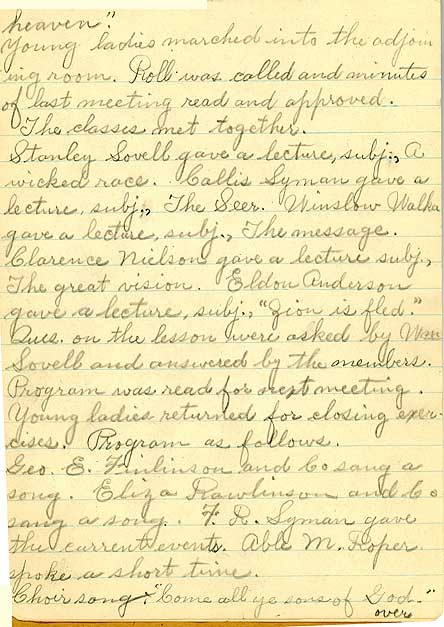 heaven."
Young ladies marched into the adjoin
ing room. Roll was called and minutes
of last meeting read and approved.
The classes met together.
Stanley Lovell gave a lecture, subj., A
wicked race. Callis Lyman gave a
lecture, subj., The Seer. Winslow Walke
gave a lecture, subj., The message.
Clarence Nielson gave a lecture subj.,
The great vision. Eldon Anderson
gave a lecture, subj., "Zion is fled."
Ques. on the lesson were asked by Wm
Lovell and answered by the members.
Program was read for next meeting.
Young ladies returned for closing exer-
cises. Program as follows.
Geo. E. Finlinson and Co sang a
song. Eliza Rawlinson and Co
sang a song. F. R. Lyman gave
the current events. Able M. Roper
spoke a short time.
Choir song. "Come all ye sons of God."
over